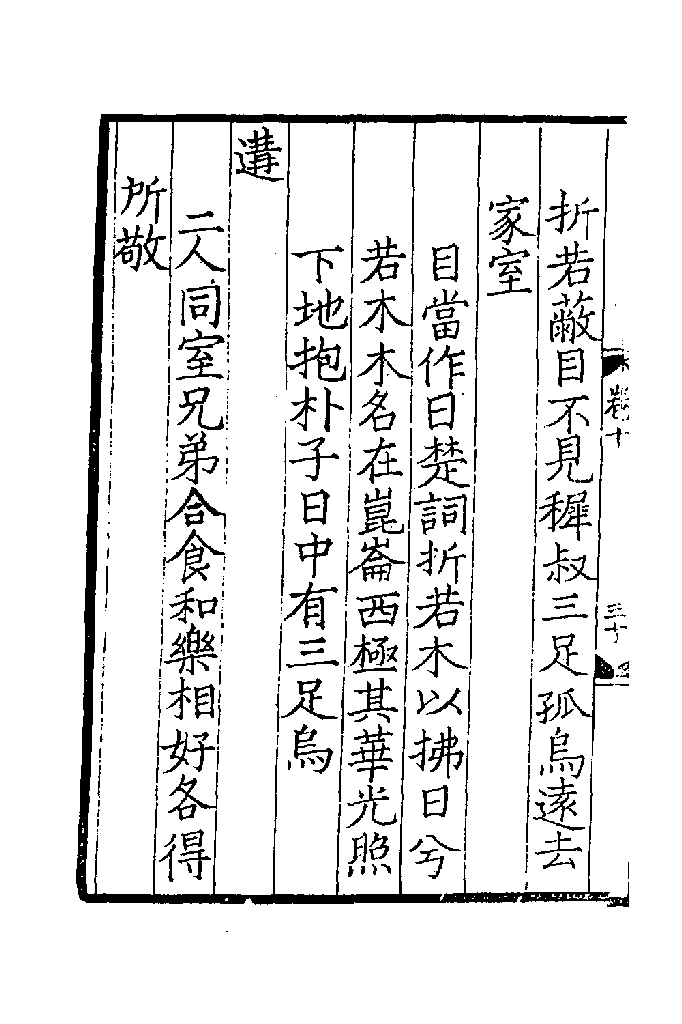 折若蔽目不見稺叔三足孤烏遠去
家室
目當作日楚詞折若木以拂日兮
若木木名在崑崙西極其華光照
下地抱朴子日中有三足烏
遘
二人同室兄弟合食和樂相好各得
所敬
卷十
三十